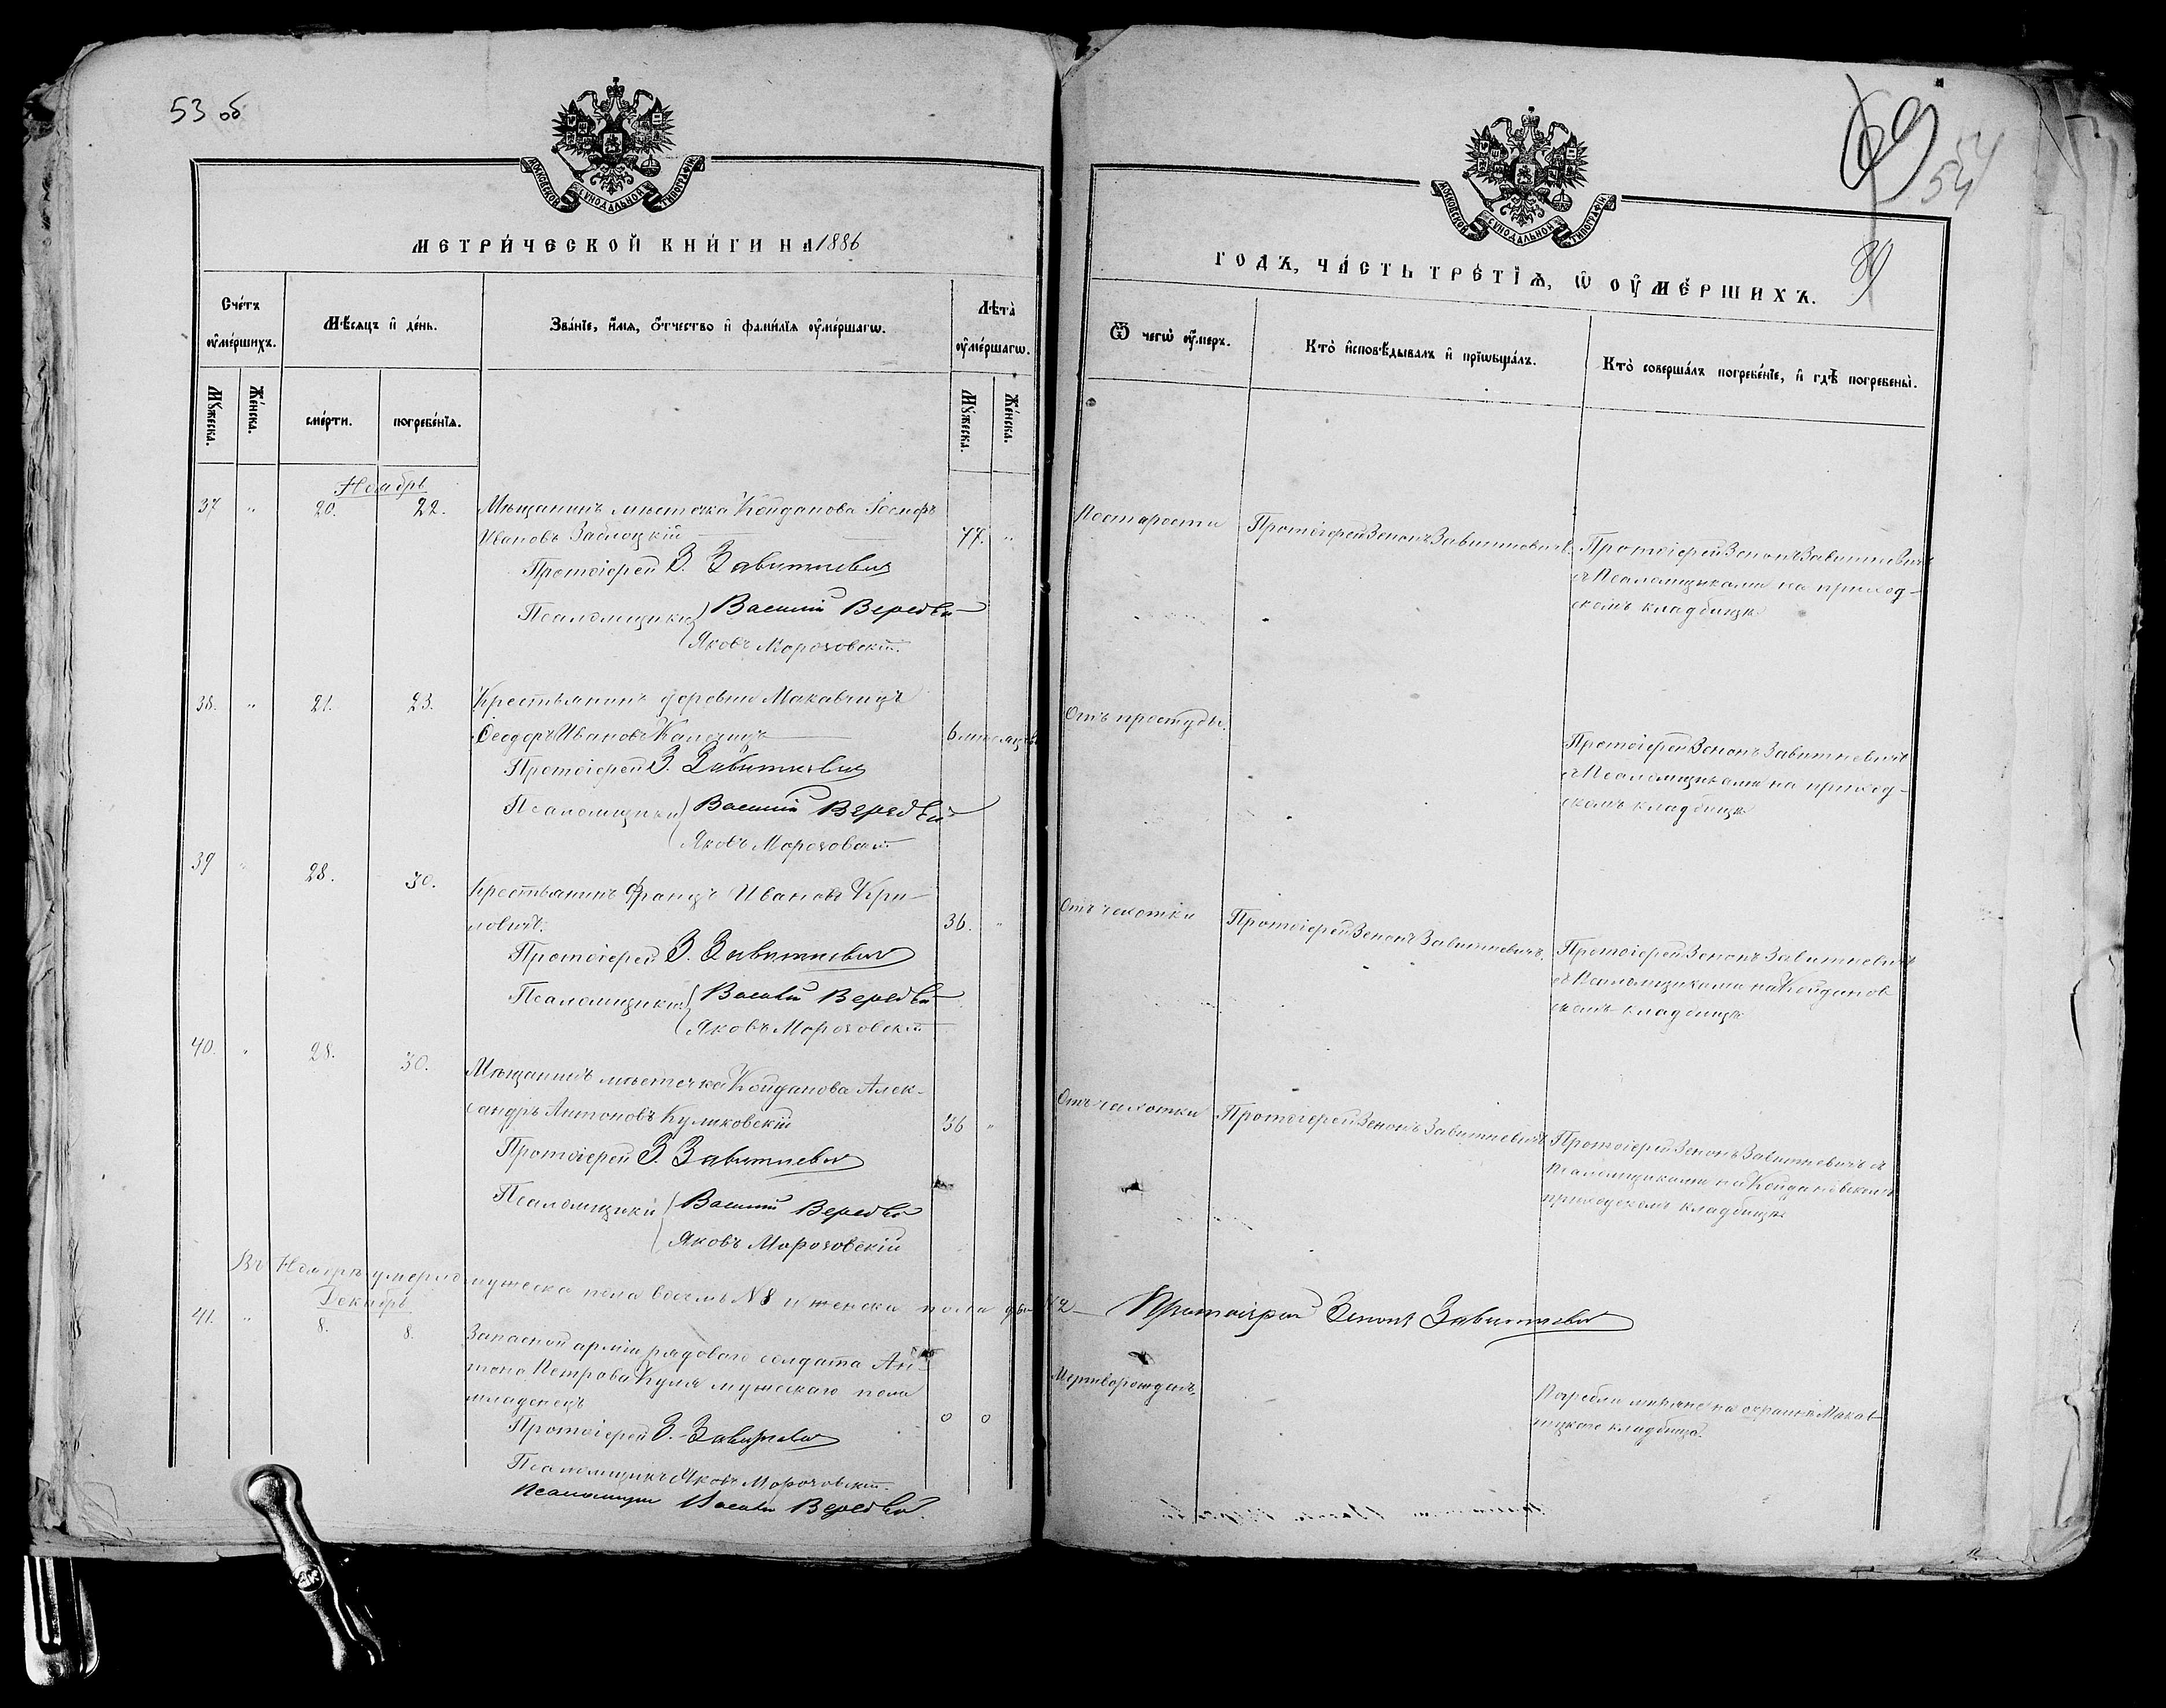 53 об
МОСКОВСКОЙ СУНОДАЛЬНОЙ ТИПОГРАФІИ
МЕТРИ́ЧЕСКОЙ КНИ́ГИ НА 1886
Сче́тъ ᲂу҆ме́ршихъ.
Мѣ́сяцъ и҆ де́нь.
Зва́нїе, и҆́мѧ, ѻ҆́тчество и҆ фами́лїѧ ᲂу҆ме́ршагѡ.
Лѣ́та ᲂу҆ме́ршагѡ.
Мꙋ́жеска.
Же́нска.
сме́рти.
погребе́нїѧ.
Мꙋ́жеска.
Же́нска.
Ноябрь
37 " 20. 22. Мѣщанинъ мѣстечка Койданова Іосифъ
Ивановъ Заблоцкій 77. "
Протоіерей З. Завитневич
Псаломщики Василій Вередѣй
Яковъ Морозовскій.
38. " 21. 23. Крестьянинъ деревни Макавчицъ
Ѳеодоръ Ивановъ 6 мѣсяцевъ
Протоіерей З. Завитневич
Псаломщики Василій Вередѣй
Яковъ Морозовскій
39 " 28. 30. Крестьянинъ Францъ Ивановъ Кри-
ловичъ. 36. "
Протоіерей З. Завитневич
Псаломщики Василій Вередѣй
Яковъ Морозовскій
40. " 28. 30. Мѣщанинъ мѣстечка Койданова Алек-
сандръ Антоновъ Куликовскій 36 "
Протоіерей З. Завитневич
Псаломщики Василій Вередѣй
Яковъ Морозовскій
Въ Ноябрѣ умерло мужеска пола восемь № 8 и женска пола два № 2 — Протоіерей Зенонъ Завитневич
Декабрь
41. " 8. 8. Запасной арміи рядоваго солдата Ан-
тона Петрова Куля мужескаго пола
младенецъ 0 0
Протоіерей З. Завитневич
Псаломщикъ Яковъ Морозовскій.
Псаломщик Василій Вередѣй.
69
54
54
89
МОСКОВСКОЙ СУНОДАЛЬНОЙ ТИПОГРАФІИ
ГОДЪ, ЧА́СТЬ ТРЕ́ТЇѦ, Ѡ҆ ОУ҆МЕ́РШИХЪ.
Ѿ чегѡ̀ ᲂу҆́меръ.
Кто̀ и҆сповѣ́дывалъ и҆ прїѡбща́лъ.
Кто̀ соверша́лъ погребе́нїе, и҆ гдѣ̀ погребены̀.
По старости
Протоіерей Зенонъ Завитневичъ.
Протоіерей Зенонъ Завитневичъ
съ Псаломщиками на приход-
скомъ кладбищѣ
Отъ простуды.
Протоіерей Зенонъ Завитневичъ
съ Псаломщиками на приход-
скомъ кладбищѣ
Отъ чахотки
Протоіерей Зенонъ Завитневичъ.
Протоіерей Зенонъ Завитневичъ
съ Псаломщиками на Койданов
скомъ кладбищѣ
Отъ чахотки
Протоіерей Зенонъ Завитневичъ
Протоіерей Зенонъ Завитневичъ съ
Псаломщиками на Койдановскомъ
приходскомъ кладбищѣ
Мертворожденъ.
Погребли міряне на окраинѣ Макав-
чицкаго кладбища.